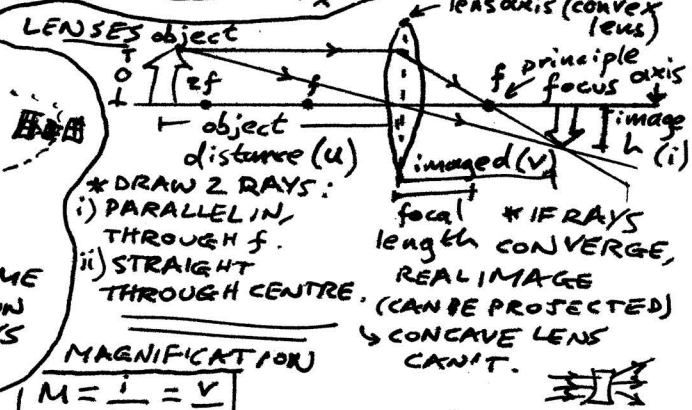 lens axis (convex
lens)
LENSES object
O
2f
f
f
principle
focus
axis
object
distance (u)
image
h
(i)
image d (v)
focal
length
* DRAW 2 RAYS:
i) PARALLEL IN,
THROUGH f.
ii) STRAIGHT
THROUGH CENTRE.
* IF RAYS
CONVERGE,
REAL IMAGE
(CAN BE PROJECTED)
↳ CONCAVE LENS
CAN'T.
MAGNIFICATION
M = i = v